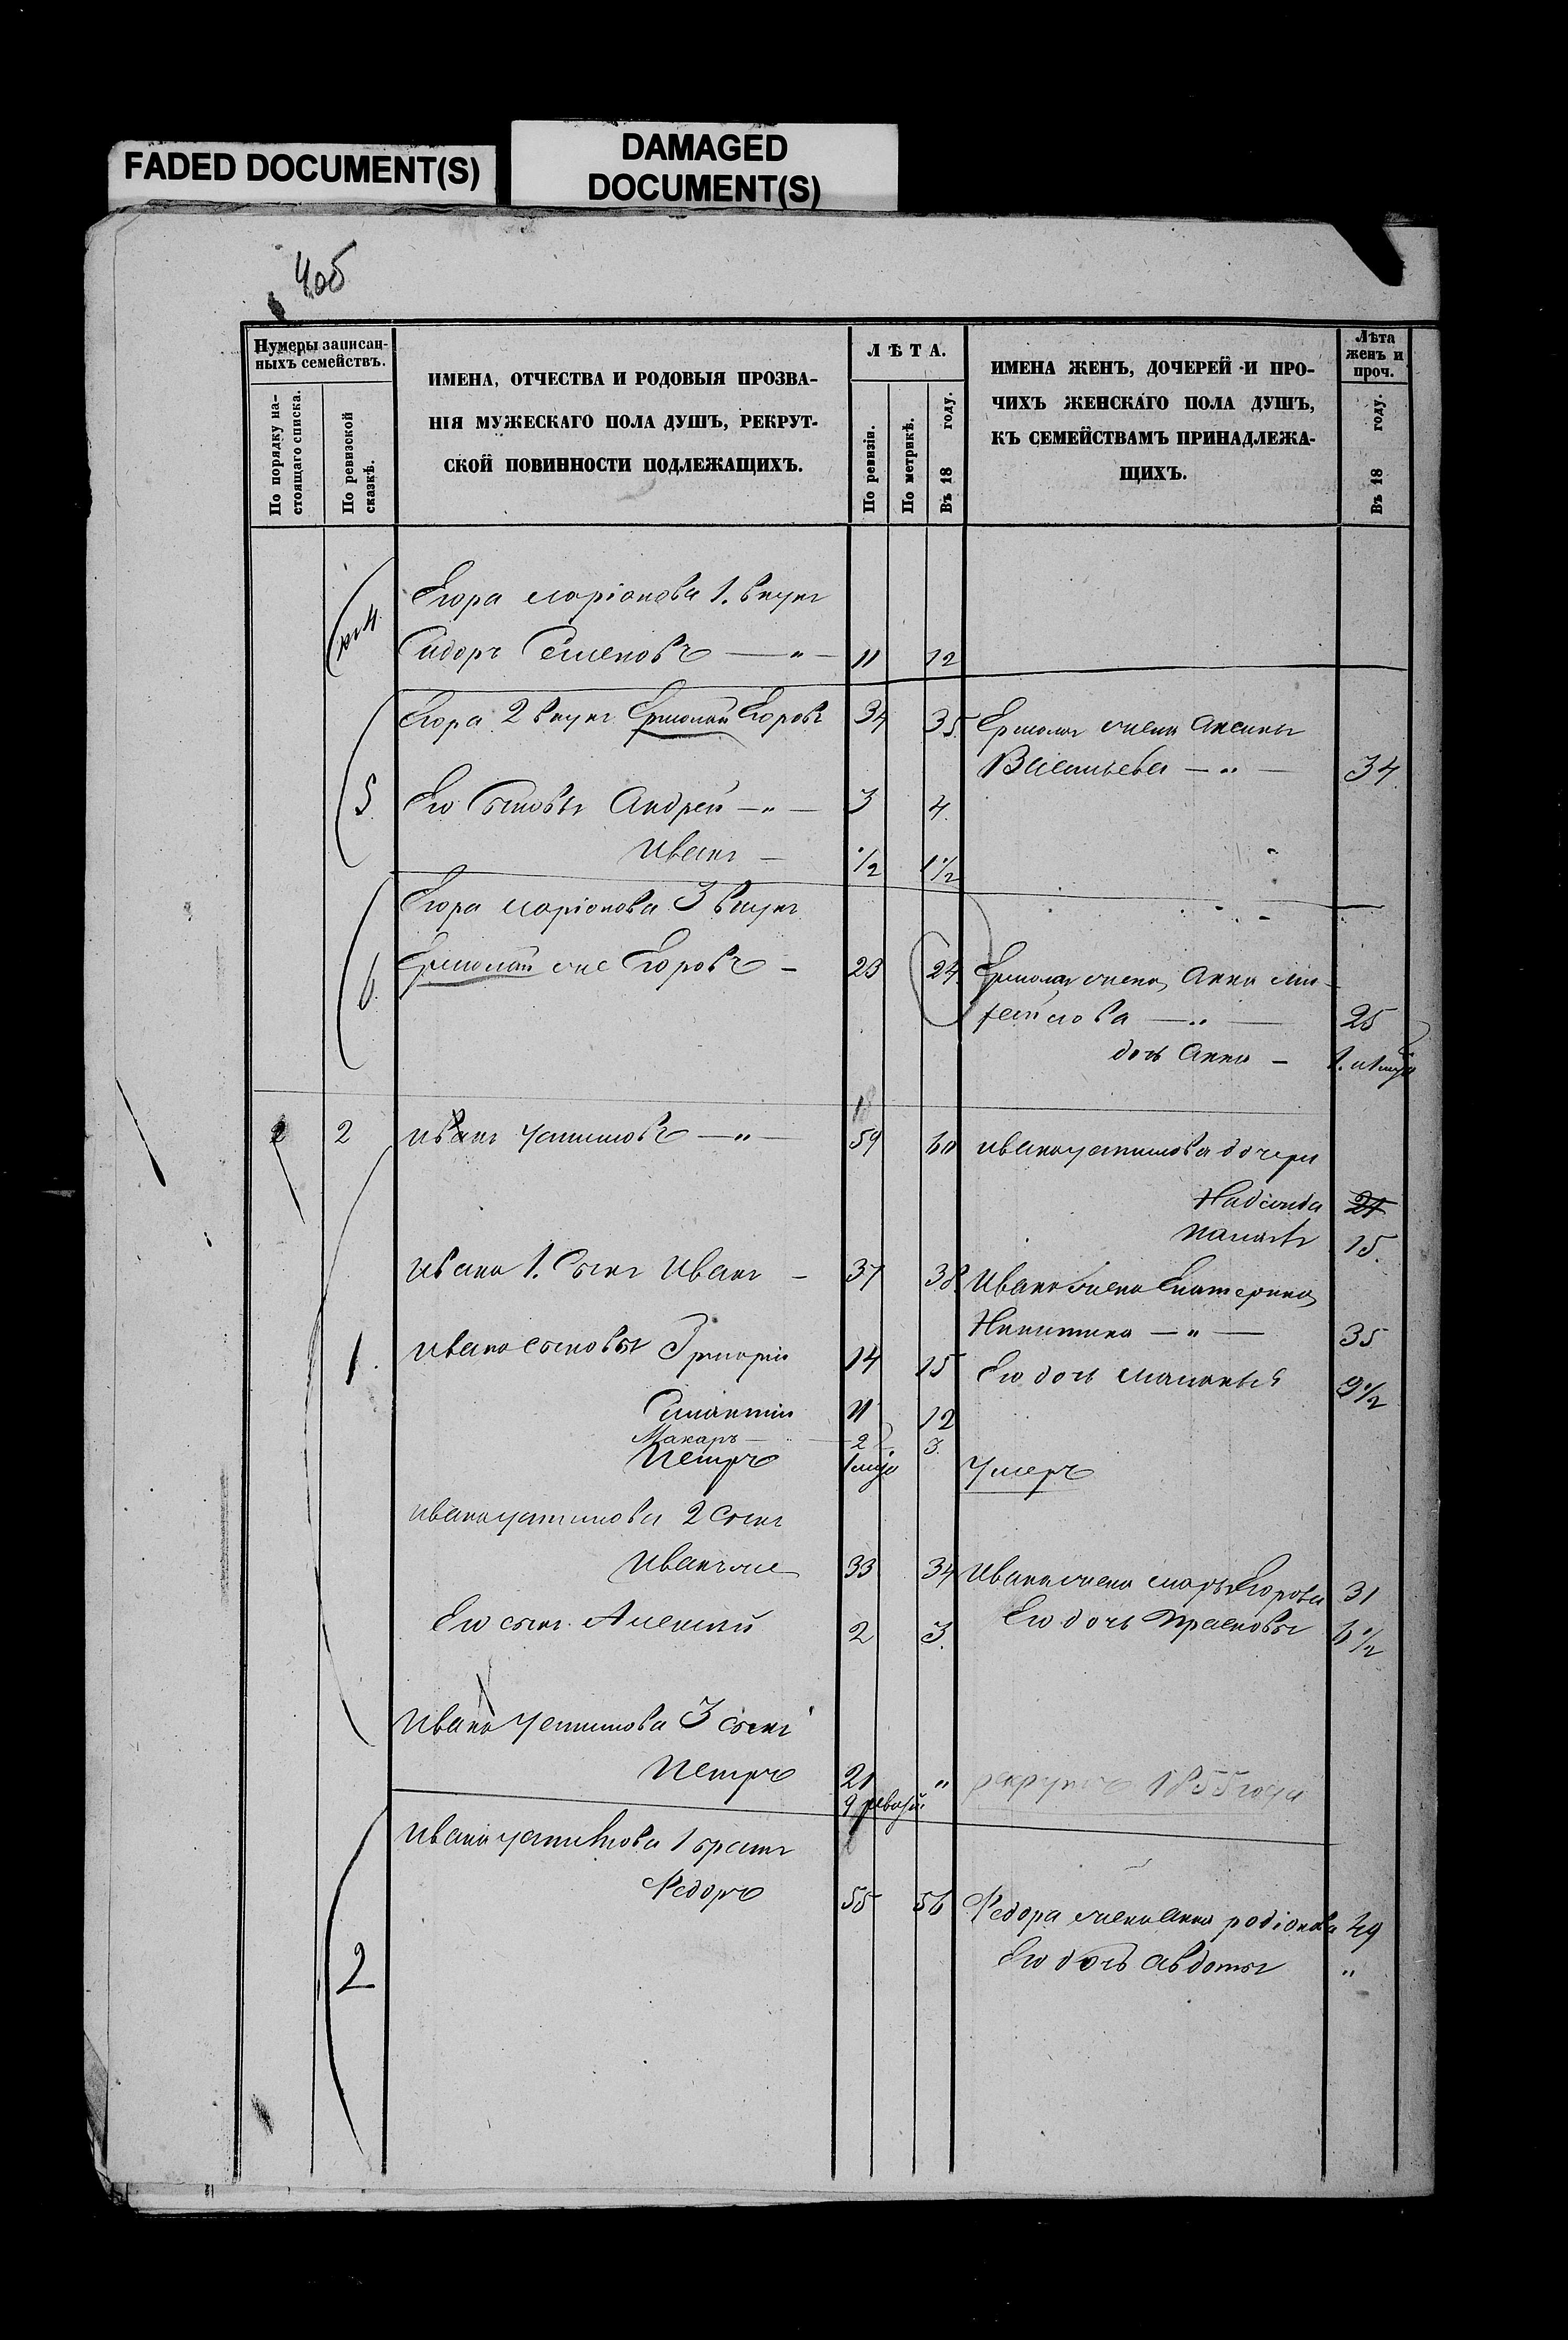 FADED DOCUMENT(S)
DAMAGED
DOCUMENT(S)
4об
Нумеры записан-
ныхъ семействъ.
По порядку на-
стоящаго списка.
По ревизской
сказкѣ.
ИМЕНА, ОТЧЕСТВА И РОДОВЫЯ ПРОЗВА-
НІЯ МУЖЕСКАГО ПОЛА ДУШЪ, РЕКРУТ-
СКОЙ ПОВИННОСТИ ПОДЛЕЖАЩИХЪ.
ЛѢТА.
По ревизіи.
По метрикѣ.
Въ 18 году.
ИМЕНА ЖЕНЪ, ДОЧЕРЕЙ И ПРО-
ЧИХЪ ЖЕНСКАГО ПОЛА ДУШЪ,
КЪ СЕМЕЙСТВАМЪ ПРИНАДЛЕЖА-
ЩИХЪ.
Лѣта
женъ и
проч.
Въ 18 году.
Егора Ларіонова 1. внукъ
4 Сидоръ Семеновъ — " — 11 12
Егора 2 внукъ Ермолай Егоровъ 34 35 Ермолая жена Аксинья
Васильева — " — 34
5 Его Сыновья Андрей — " — 3 4
Иванъ — 1/2 1 1/2
Егора Ларіонова 3 внукъ
6 Ермолай же Егоровъ — 23 24 Ермолая жена Анна
25
дочь Анна — 1.
2 2 Иванъ Устиновъ — " — 59 60 Ивана Устинова дочери
Надежда 24
15.
Ивана 1. Сынъ Иванъ — 37 38. Ивана жена Екатерина
Никитина — " — 35
1. Ивана сыновья Григорій 14 15 Его дочь Маланья 9 1/2
11 12
Макаръ — 2 3.
Петръ Умеръ
Ивана Устинова 2 сынъ
Иванъ же 33 34 Ивана жена Марья Егорова 31
Его сынъ Алексѣй 2 3. Его дочь Прасковья 6 1/2
Ивана Устинова 3 сынъ
Петръ 21 " рекрутъ 1855 года
9 ревизіи
Ивана Устинова 1 братъ
Федоръ 55 56 Федора жена Анна Родіонова 49
2 Его дочь Авдотья "